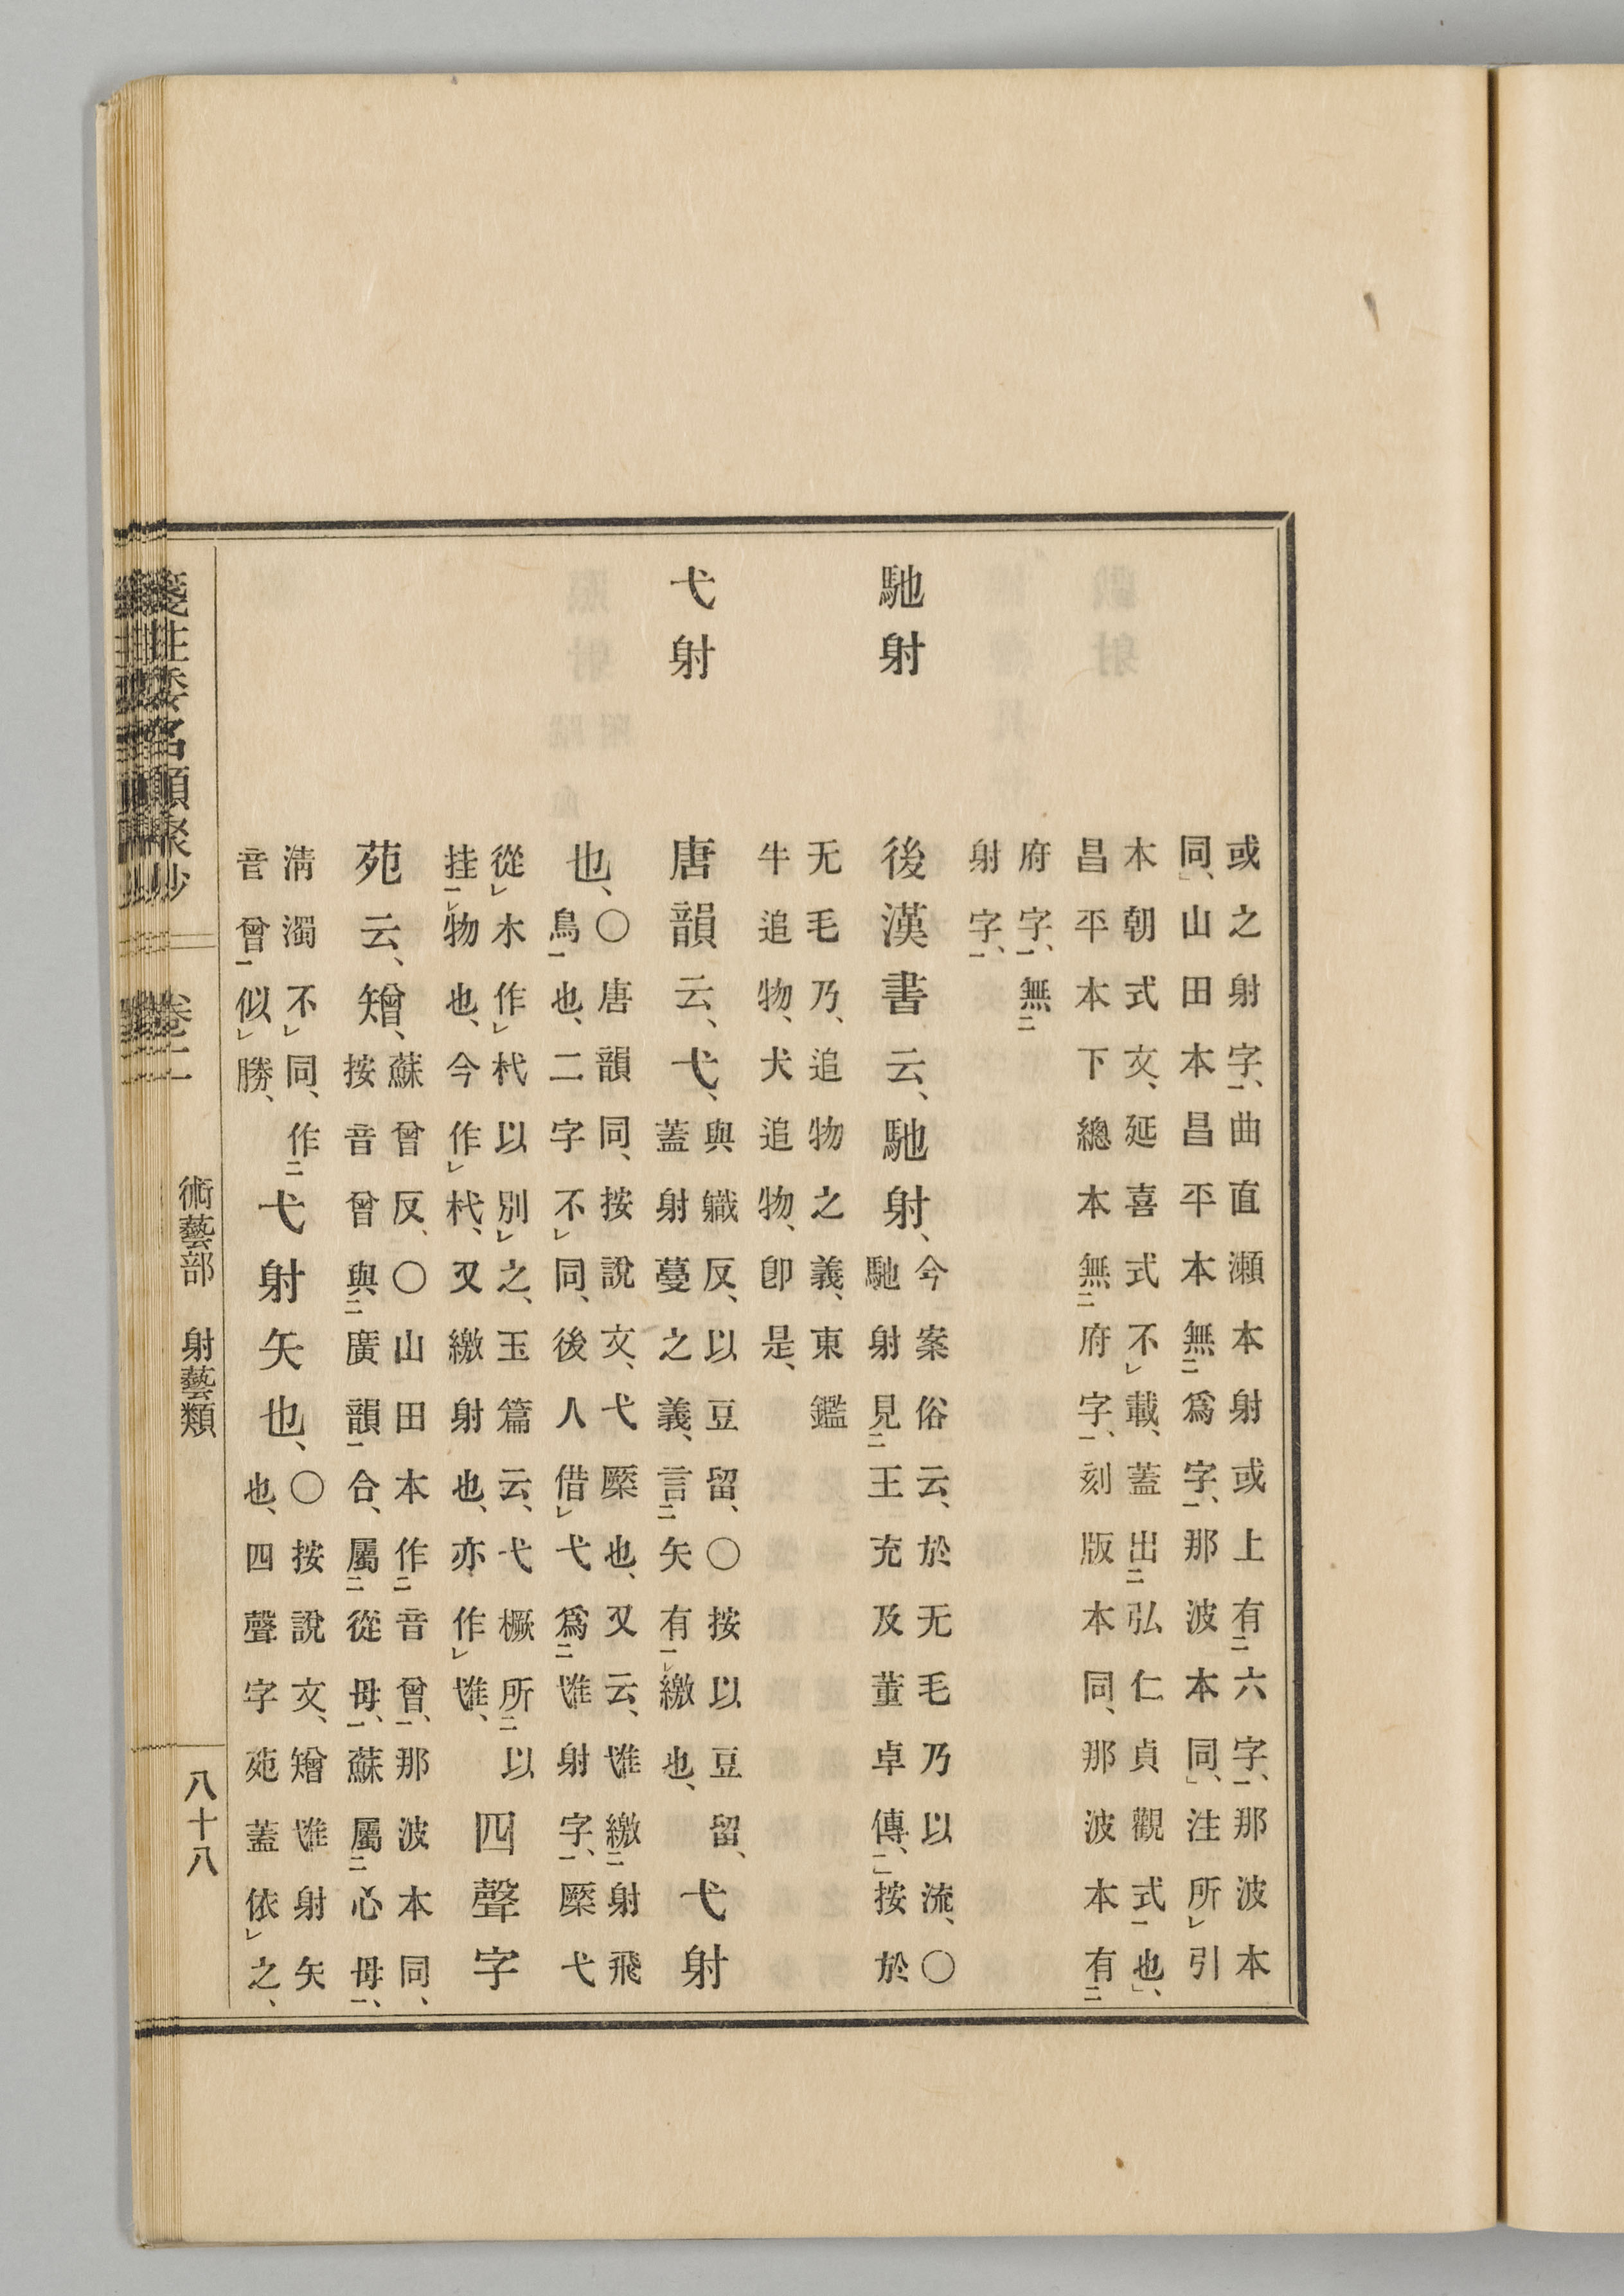 或之射字、曲直瀬本射或上有六字、那波本
同、山田本昌平本無爲字、那波本同、注所引
本朝式文、延喜式不載、蓋出弘仁貞觀式也、
昌平本下總本無府字、刻版本同、那波本有
府字、無
射字、
馳射
後漢書云、馳射、
今案俗云、於无毛乃以流、〇
馳射見王充及董卓傳、按於
无毛乃、追物之義、東鑑
牛追物、犬追物、卽是、
弋射
唐韻云、弋、
與軄反、以豆留、〇按以豆留、
蓋射蔓之義、言矢有繳也、
弋射
也、
〇唐韻同、按說文、弋檿也、又云、䨀繳射飛
鳥也、二字不同、後人借弋爲䨀射字、檿弋
從木作杙以別之、玉篇云、弋橛所以
挂物也、今作杙、又繳射也、亦作䨀、
四聲字
苑云、矰、
蘇曾反、〇山田本作音曾、那波本同、
按音曾與廣韻合、屬從母、蘇屬心母、
淸濁不同、作
音曾似勝、
弋射矢也、
〇按說文、矰䨀射矢
也、四聲字苑蓋依之、
箋注倭名類聚抄 卷二 術藝部 射藝類 八十八